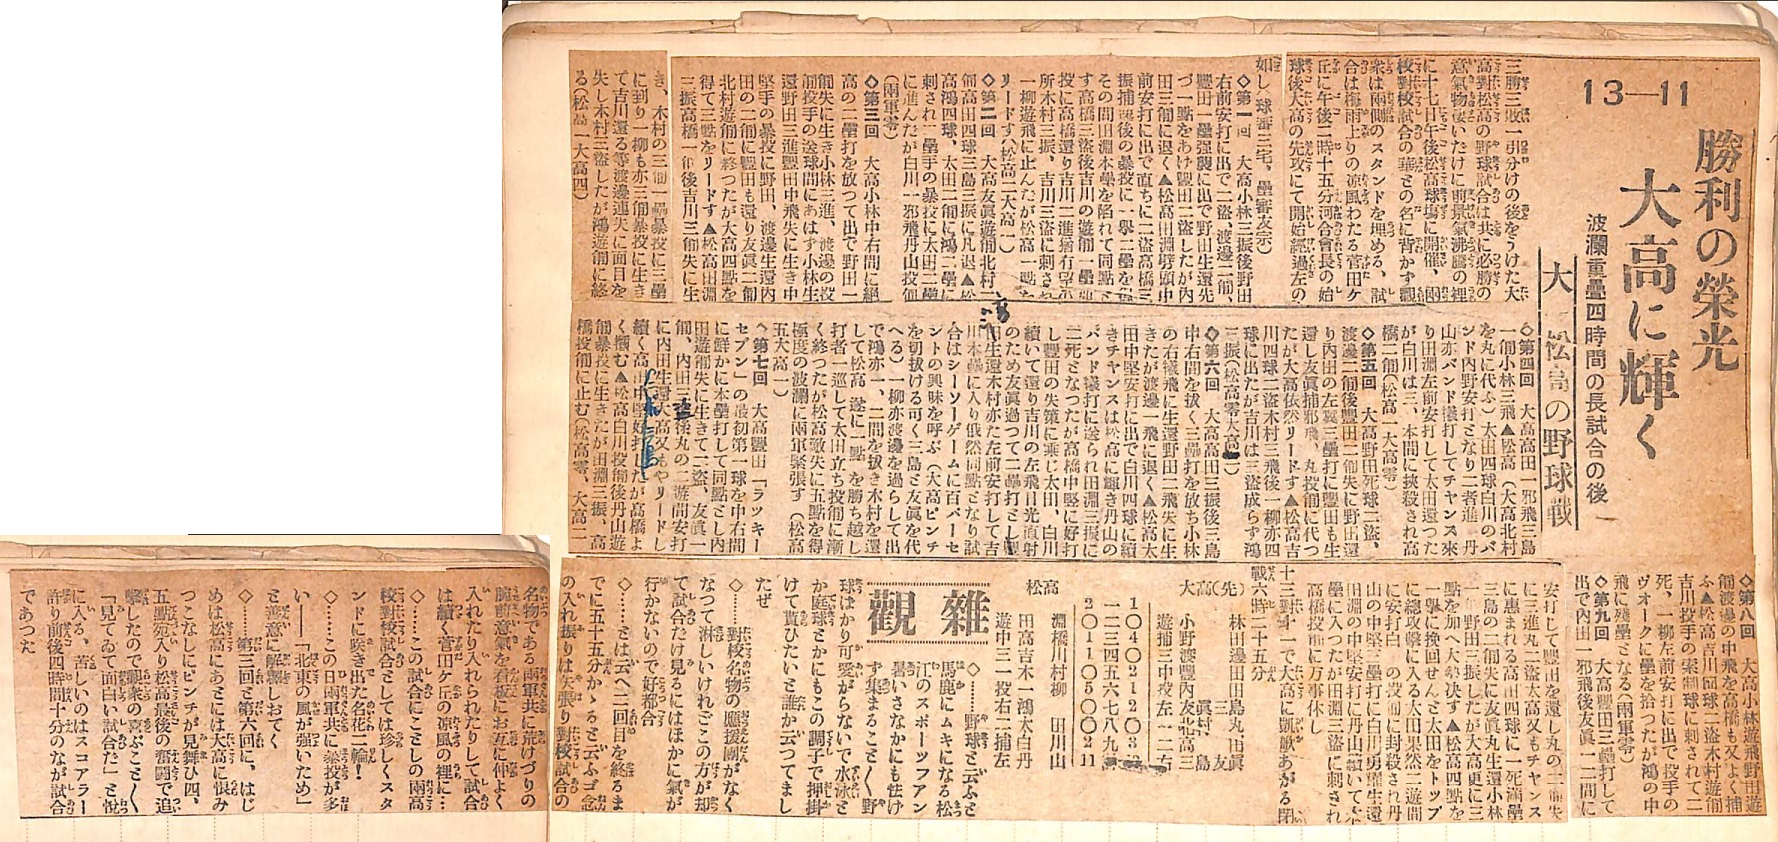 13—11
勝利の榮光
大高に輝く
波瀾重疊四時間の長試合の後
大松高の野球戰
三勝三敗一引分けの後をうけた大
高對松高の野球試合は共に必勝の
意氣物凄いだけに前景氣沸騰の裡
に十七日午後松高球場に開催、兩
校對校試合の華との名に背かず觀
衆は兩側のスタンドを埋める、試
合は梅雨上りの凉風わたる菅田ケ
丘に午後二時十五分河合會長の始
球後大高の先攻にて開始經過左の
如し（球審三宅、壘審友示）
◇第一回　大高小林三振後野田
右前安打に出で二盜、渡邊二匍、
豐田一壘强襲に出で野田生還先
づ一點をあけ豐田二盜したが內
田三匍に退く▲松高田淵劈頭中
前安打に出で直ちに二盜高橋三
振捕逸後の暴投に一擧二壘を
その間田淵本壘を陷れて同點と
す高橋三盜後吉川の遊匍一壘
投に高橋還り吉川二進
所木村三振、吉川三盜に刺さ
一柳遊飛に止んだが松高一點を
リードす（松高二大高一）
◇第二回　大高友眞遊匍北村一
匍高田四球三島三振に凡退▲松
高鴻四球、太田二匍に鴻二壘に
刺され一壘手の暴投に太田二壘
に進んだが白川一邪飛丹山投匍
（兩軍零）
◇第三回　大高小林中右間に絕
高の二壘打を放つて出で野田一
匍失に生き小林三進、渡邊の投
匍投手の送球間にあはず小林生
還野田三進豐田中飛失に生き中
堅手の暴投に野田、渡邊生還內
田の二匍に豐田も還り友眞二匍
北村遊匍に終つたが大高四點を
得て三點をリードす▲松高田淵
三振高橋一匍後吉川三匍失に生
き、木村の三匍一壘暴投に三壘
に到り一柳も亦三匍暴投に生き
て吉川還る等渡邊連失に面目を
失し木村三盜したが鴻遊匍に終
る（松高一大高四）
◇第四回　大高高田一邪飛三島
一匍小林三飛▲松高（大高北村
を丸に代ふ）太田四球白川のバ
ンド內野安打となり二者進一丹
山亦バンド犧打してチャンス來
り田淵左前安打して太田還つた
が白川は三、本間に挾殺され高
橋二匍（松高一大高零）
◇第五回　大高野田死球二盜、
渡邊二匍後豐田二匍失に野田還
り內田の左翼三壘打に豐田も生
還し友眞捕邪飛、丸投匍に代つ
たが大高依然リードす▲松高吉
川四球二盜木村三飛後一柳亦四
球に出たが吉川は三盜成らず鴻
三振（松高零大高二）
◇第六回　大高高田三振後三島
中右間を拔く三壘打を放ち小林
の右犧飛に生還野田二飛失に生
きたが渡邊一飛に退く▲松高太
田中堅安打に出で白川四球に續
きチャンスは松高に輝き丹山の
バンド犧打に送られ田淵三振に
二死となつたが高橋中堅に好打
し豐田の失策に乘じ太田、白川
續いて還り吉川の左飛日光直射
のため友眞過つて二壘打とし
生還木村亦た左前安打して吉
川本壘に入り俄然同點となり試
合はシーソーゲームに百パーセ
ントの興味を呼ぶ（大高ピンチ
を切拔ける可く三島と友眞を代
へる）一柳亦渡邊を過らして出
で鴻亦一、二間を拔き木村を還
して松高　遂に一點を勝ち越し
打者一巡して太田立ち投匍に漸
く終つたが松高敵失に五點を得
極度の波瀾に兩軍緊張す（松高
五大高一）
◇第七回　大高豐田「ラツキー
セブン」の最初第一球を中右間
に鮮かに本壘打して同點とし內
田遊匍失に生きて二盜、友眞一
匍、內田三盜後丸の二遊間安打
に內田生還大高又もやリードし
續く高田中堅好打したが高橋よ
く摑む▲松高白川投匍後丹山遊
匍暴投に生きたが田淵三振、高
橋投匍に止む（松高零、大高二
◇第八回　大高小林遊飛野田遊
匍渡邊の中飛を高橋も又よく捕
ふ▲松高吉川四球二盜木村遊匍
吉川投手の牽制球に刺されて二
死、一柳左前安打に出で投手の
ヴオークに壘を拾つたが鴻の中
飛に殘壘となる（兩軍零）
◇第九回　大高豐田三壘打して
出で內田一邪飛後友眞一二間に
安打して豐田を還し丸の二匍失
に三進丸二盜高又もチャンス
に惠まれる高田四球に一死滿壘
三島の二匍失に友眞丸生還小林
一野田三振したが大高更に三
點を加へ大勢決す▲松高四點を
一擧に挽回せんと太田をトップ
に總攻擊に入る太田果然二遊間
に安打に白川の投匍に封殺され丹
山の中堅三壘打に白川勇躍生還
田淵の中堅安打に丹山續いて本
壘に入つたが田淵三盜に刺され
高橋投匍に万事休し
十三對十一で大高に凱歌あがる閉
戰六時二十五分
大高（先）
小野渡豐內友北高三
林田邊田田眞村田島
遊捕三中投左一二右
123456789
104021203
201105002
松高
田高吉木一鴻太白丹
淵橋川村柳　田川山
遊中三一投右二捕左
雜觀
◇……野球と云ふと
馬鹿にムキになる松
江のスポーツフアン
暑いさなかにも怯け
ず集まることく野
球ばかり可愛がらないで水泳と
か庭球とかにもこの調子で押掛
けて貰ひたいと誰か云つてまし
たぜ
◇……對校名物の應援團がなく
なつて淋しいけれどこの方が却
て試合だけ見るにはほかに氣が
行かないので好都合
◇……とは云へ二回目を終るま
でに五十五分かゝると云ふゴ念
の入れ振りは矢張り對校試合の
名物である兩軍共に荒けづりの
腕前意氣を看板にお互に仲よく
入れたり入れられたりして試合
は續く菅田ケ丘の凉風の裡に…
◇……この試合にことしの兩高
校對校試合としては珍しくスタ
ンドに咲き出た名花二輪！
◇……この日兩軍共に暴投が多
い——「北東の風が强いため」
と善意に解釋しおてく
◇……第三回と第六回に、はじ
めは松高にあとには大高に恨み
つこなしにピンチが見舞ひ四、
五點宛入り松高最後の奮鬪で追
擊したので觀衆の喜ぶことく
「見てゐて面白い試合だ」と悅
に入る、苦しいのはスコアラー
許り前後四時間十分のなが試合
であつた